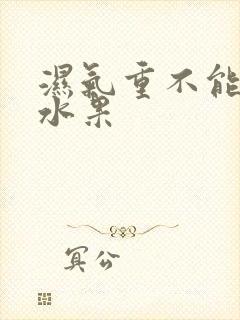 濕氣重不能
水果
冥公